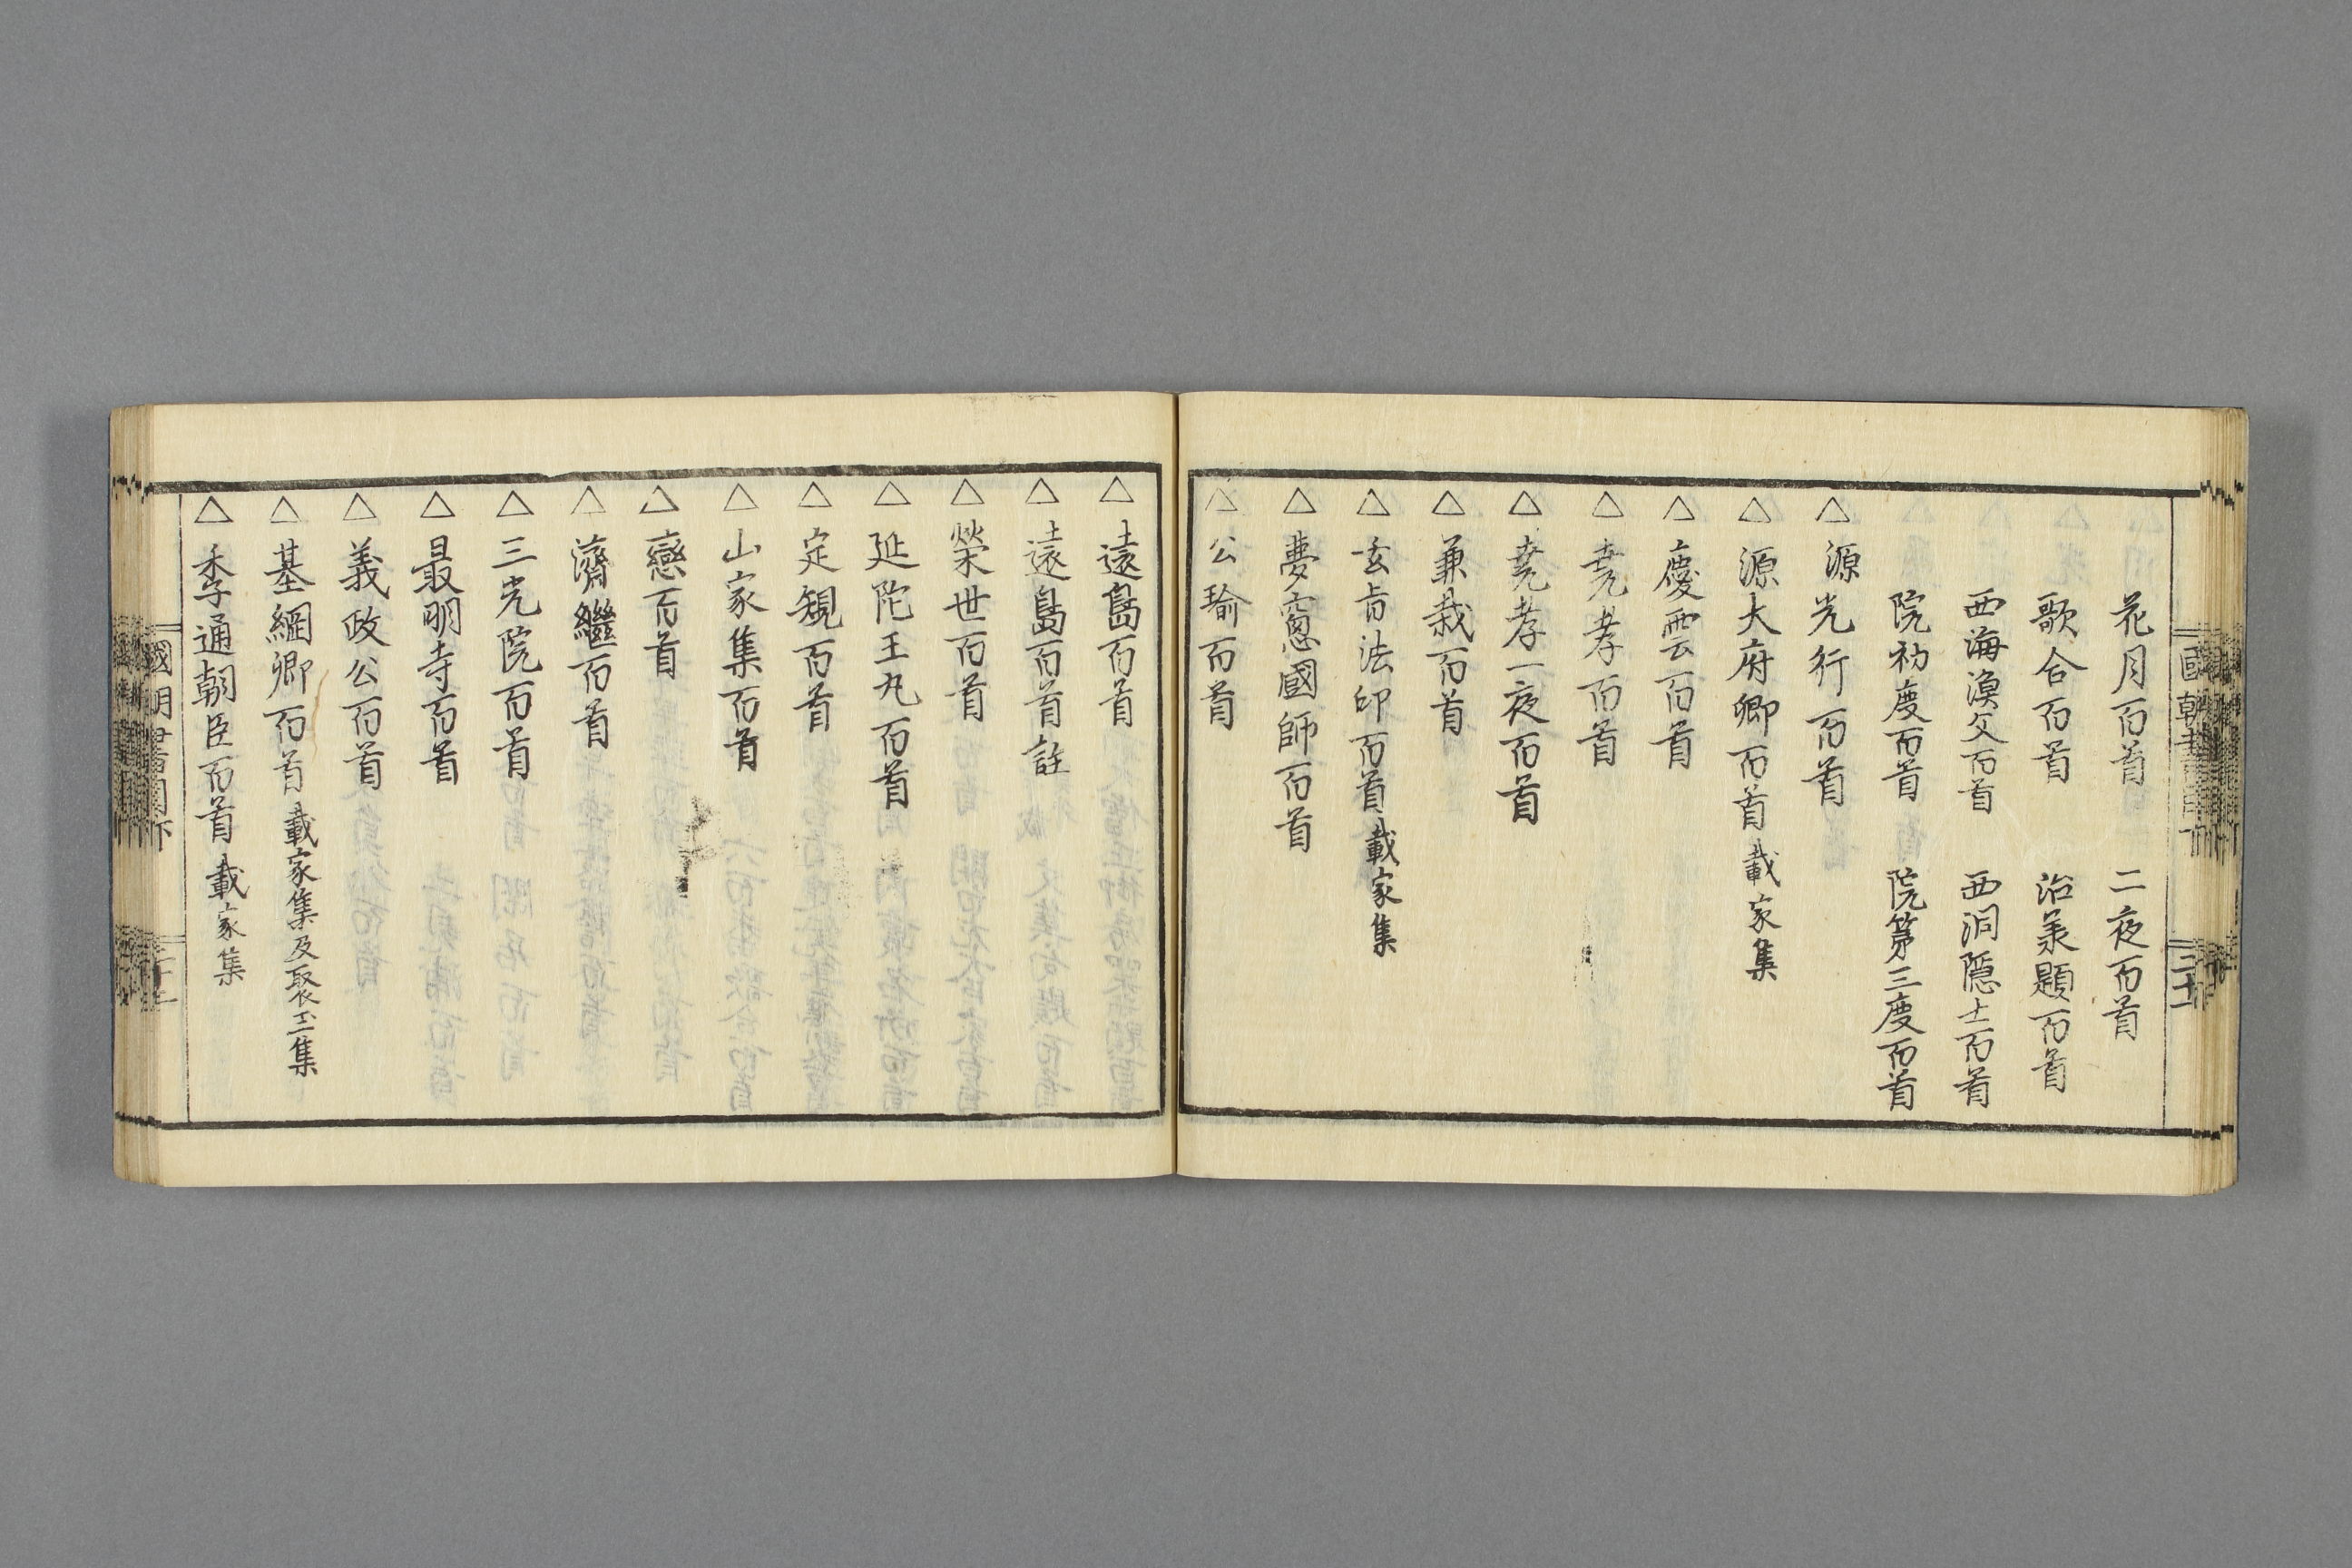 花月百首　二夜百首
歌合百首　治承題百首
西海漁父百首　西洞隠士百首
院初度百首　院第三度百首
△源光行百首
△源大府卿百首 載家集
△慶雲百首
△尭孝百首
△尭孝一夜百首
△兼載百首
△玄旨法印百首 載家集
△夢窓國師百首
△公瑜百首
△遠島百首
△遠島百首註
△榮世百首
△延陀王丸百首
△定観百首
△山家集百首
△戀百首
△濟繼百首
△三光院百首
△最明寺百首
△義政公百首
△基綱卿百首 載家集及聚玉集
△季通朝臣百首 載家集